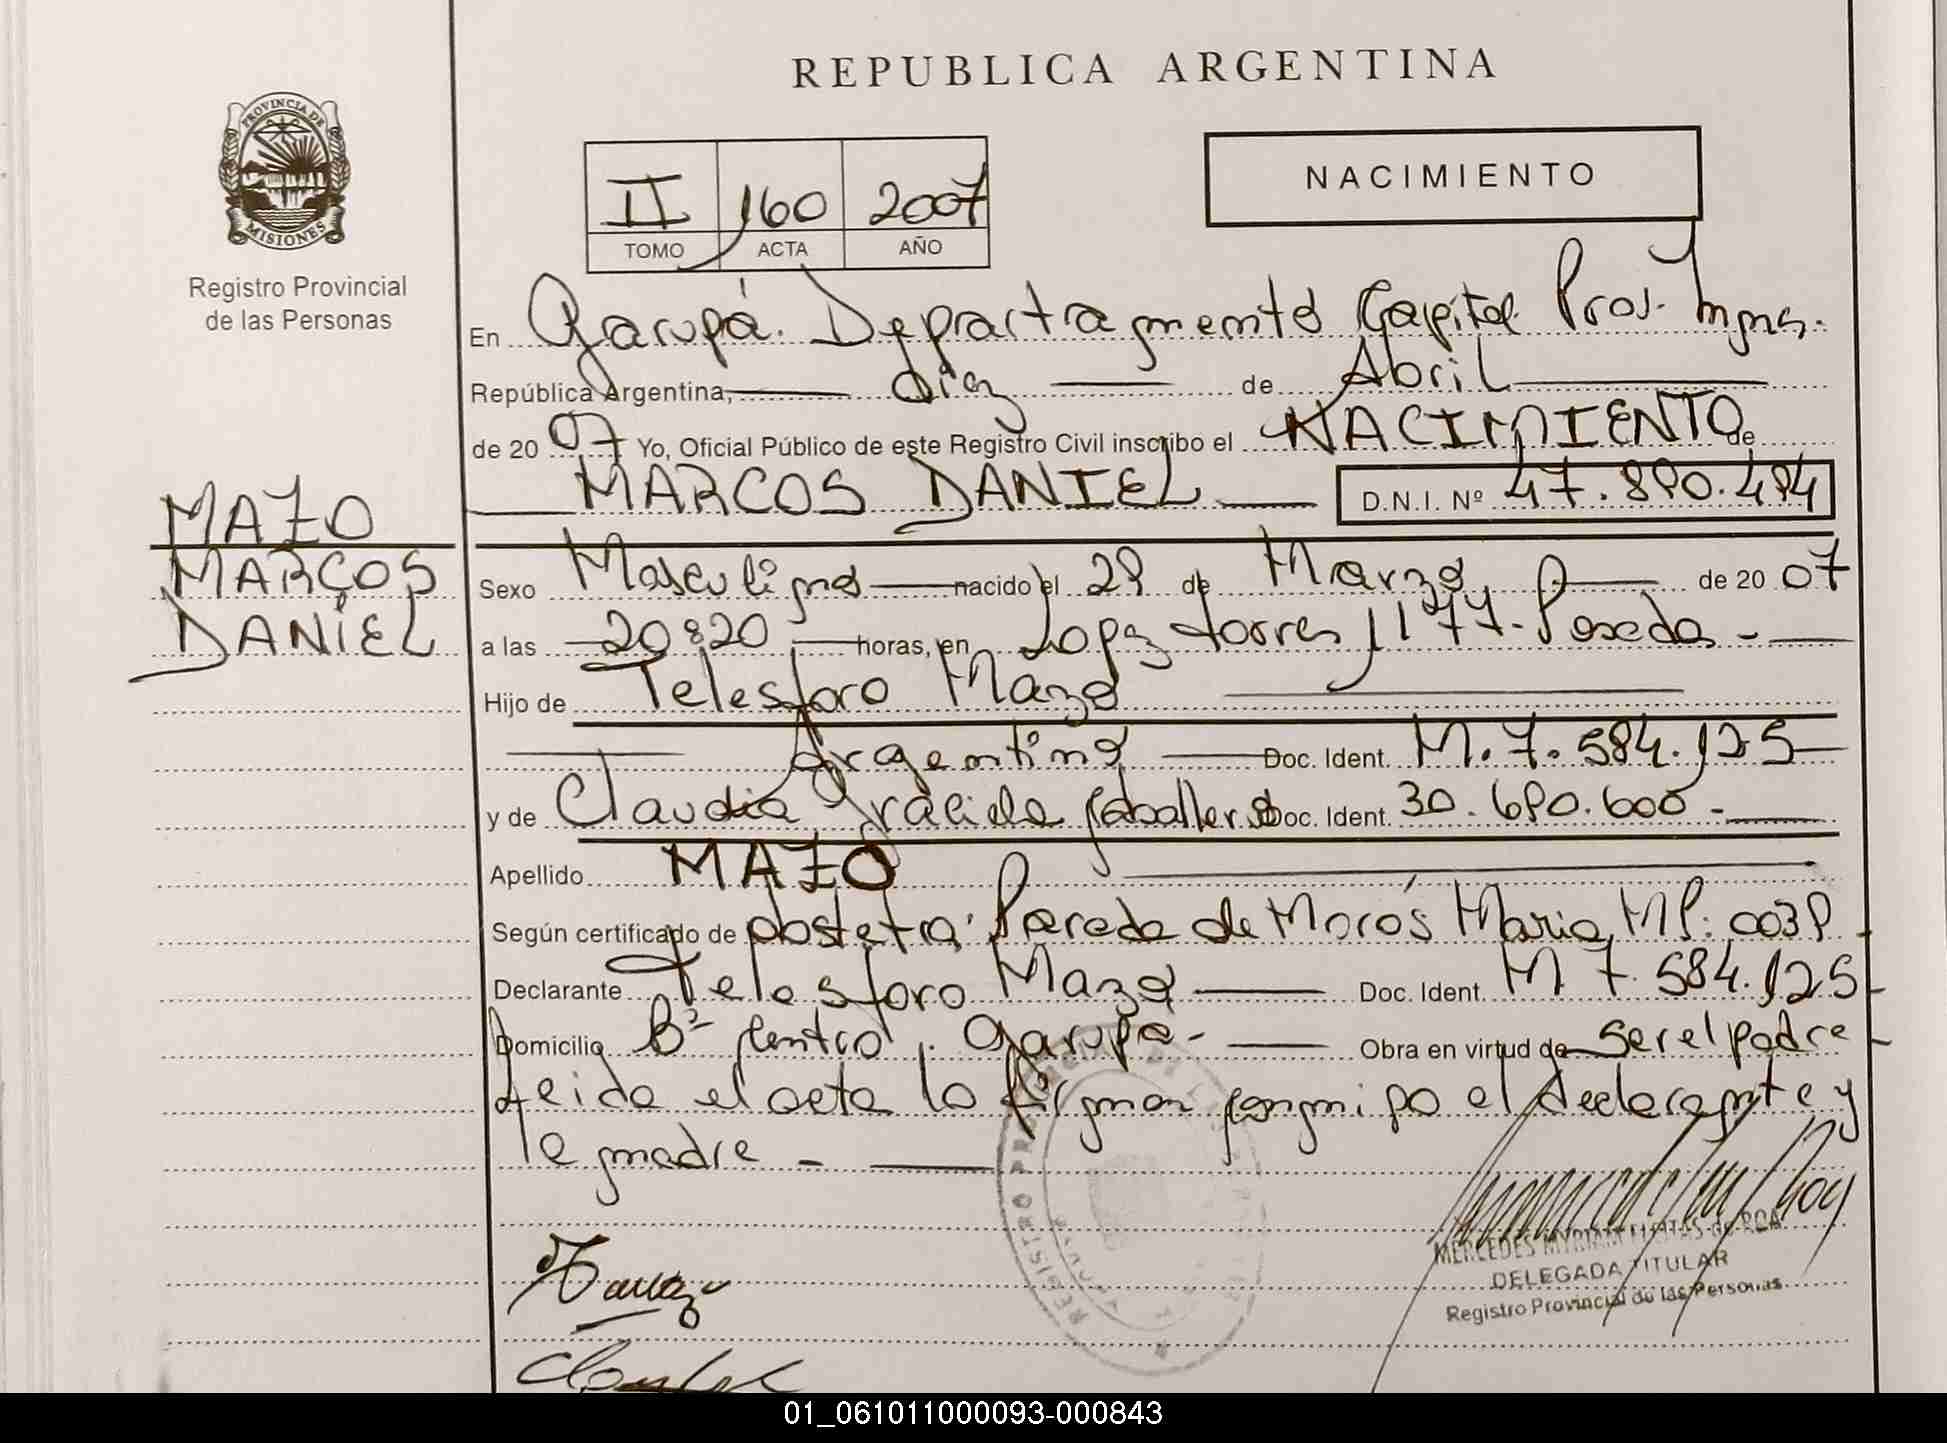 REPUBLICA ARGENTINA
PROVINCIA DE
MISIONES
Registro Provincial
de las Personas
II 160 2007
TOMO ACTA AÑO
NACIMIENTO
En Garupá. Departramento Capital Prov. Mnes.
República Argentina, diez de Abril
de 20 07 Yo, Oficial Público de este Registro Civil inscribo el NACIMIENTO de
MARCOS DANIEL D.N.I. Nº 47.890.494
MAZO
MARCOS
DANIEL
Sexo Masculino nacido el 29 de Marzo de 20 07
a las 20:20 horas, en Lopez torres 1177- Posadas -
Hijo de Telesforo Mazo
Argentino Doc. Ident. M. 7. 584. 125
y de Claudia Graciela Caballero Doc. Ident. 30. 690. 600 -
Apellido MAZO
Según certificado de obstetra: Pereda de Morós Maria MP: 0039
Declarante Telesforo Mazo Doc. Ident. M 7. 584. 125
Domicilio Bº Centro, Garupá- Obra en virtud de ser el padre
Leida el acta la firman conmigo el declarante y
la madre -
REGISTRO
MERCEDES MYRIAM FLEITAS de ROA
DELEGADA TITULAR
Registro Provincial de las Personas
01_061011000093-000843